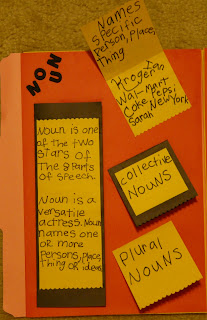 NOUN
Names
specific
person, place,
Thing
Ian
Kroger
Wal-mart
Coke Pepsi
Sarah New York
Noun is one
of The two
stars of
The 8 parts
of speech.
Noun is a
versatile
actress. Noun
names one
or more
persons, place,
Thing or ideas.
collective
NOUNS
plural
NOUNS